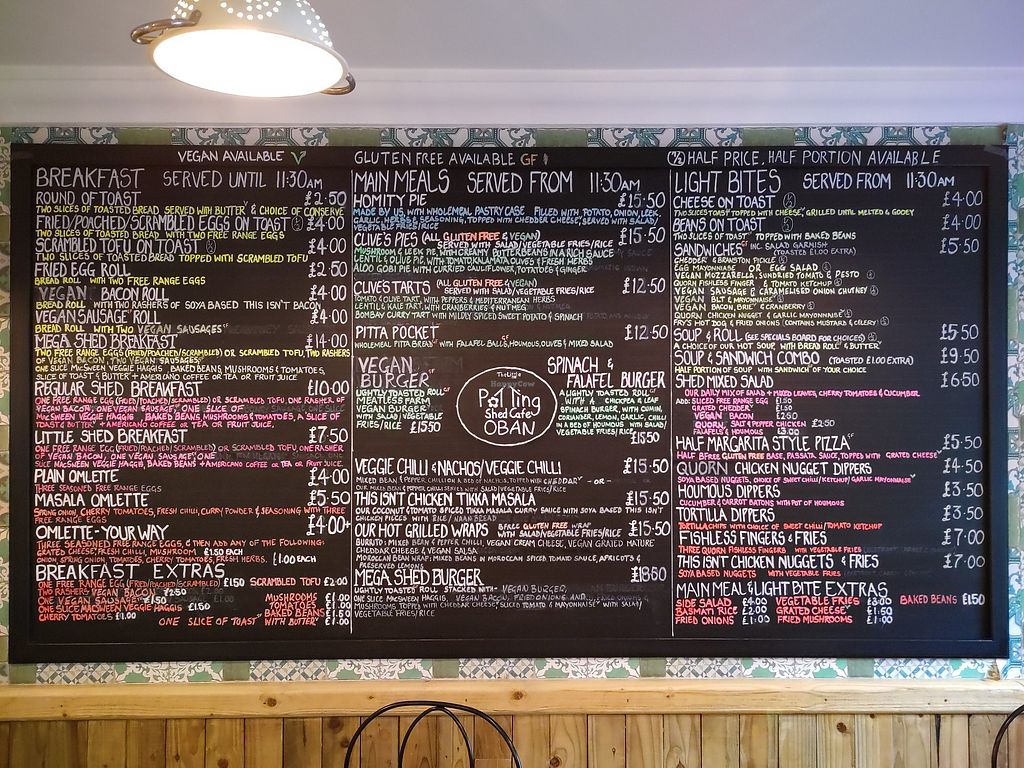 VEGAN AVAILABLE V
GLUTEN FREE AVAILABLE GF
(½) HALF PRICE, HALF PORTION AVAILABLE
BREAKFAST SERVED UNTIL 11:30AM
ROUND OF TOAST £2·50
TWO SLICES OF TOASTED BREAD SERVED WITH BUTTER & CHOICE OF CONSERVE
FRIED/POACHED/SCRAMBLED EGGS ON TOAST £4·00
TWO SLICES OF TOASTED BREAD WITH TWO FREE RANGE EGGS
SCRAMBLED TOFU ON TOAST £4·00
TWO SLICES OF TOASTED BREAD TOPPED WITH SCRAMBLED TOFU
FRIED EGG ROLL £2·50
BREAD ROLL WITH TWO FREE RANGE EGGS
VEGAN BACON ROLL £4·00
BREAD ROLL WITH TWO RASHERS OF SOYA BASED THIS ISN'T BACON
VEGAN SAUSAGE ROLL £4·00
BREAD ROLL WITH TWO VEGAN SAUSAGES
MEGA SHED BREAKFAST £14·00
TWO FREE RANGE EGGS (FRIED/POACHED/SCRAMBLED) OR SCRAMBLED TOFU, TWO RASHERS
OF VEGAN BACON, TWO VEGAN SAUSAGES
ONE SLICE MACSWEEN VEGGIE HAGGIS, BAKED BEANS, MUSHROOMS & TOMATOES,
SLICE OF TOAST & BUTTER + AMERICANO COFFEE OR TEA OR FRUIT JUICE
REGULAR SHED BREAKFAST £10·00
ONE FREE RANGE EGG (FRIED/POACHED/SCRAMBLED) OR SCRAMBLED TOFU, ONE RASHER OF
VEGAN BACON, ONE VEGAN SAUSAGE, ONE SLICE OF
MACSWEEN VEGGIE HAGGIS, BAKED BEANS MUSHROOMS & TOMATOES, A SLICE OF
TOAST & BUTTER + AMERICANO COFFEE OR TEA OR FRUIT JUICE.
LITTLE SHED BREAKFAST £7·50
ONE FREE RANGE EGG (FRIED/POACHED/SCRAMBLED) OR SCRAMBLED TOFU, ONE RASHER
OF VEGAN BACON, ONE VEGAN SAUSAGE, ONE
SLICE MACSWEEN VEGGIE HAGGIS, BAKED BEANS + AMERICANO COFFEE OR TEA OR FRUIT JUICE
PLAIN OMLETTE £4·00
THREE SEASONED FREE RANGE EGGS
MASALA OMLETTE £5·50
SPRING ONION, CHERRY TOMATOES, FRESH CHILLI, CURRY POWDER & SEASONING WITH THREE
FREE RANGE EGGS
OMLETTE-YOUR WAY £4·00+
THREE SEASONED FREE RANGE EGGS, & THEN ADD ANY OF THE FOLLOWING:
GRATED CHEESE, FRESH CHILLI, MUSHROOM £1.50 EACH
ONION, SPRING ONION, TOMATOES, CHERRY TOMATOES, FRESH HERBS. £1.00 EACH
BREAKFAST EXTRAS
ONE FREE RANGE EGG (FRIED/POACHED/SCRAMBLED) £1·50 SCRAMBLED TOFU £2·00
TWO RASHERS VEGAN BACON £2·50
ONE VEGAN SAUSAGE £1·50 MUSHROOMS £1·50
ONE SLICE MACSWEEN VEGGIE HAGGIS £1·50 TOMATOES £1·00
BAKED BEANS £1·50
CHERRY TOMATOES £1.00 ONE SLICE OF TOAST WITH BUTTER £1·00
MAIN MEALS SERVED FROM 11:30AM
HOMITY PIE £15·50
MADE BY US, WITH WHOLEMEAL PASTRY CASE FILLED WITH POTATO, ONION, LEEK,
GARLIC, HERBS & SEASONING, TOPPED WITH CHEDDAR CHEESE, SERVED WITH SALAD/
VEGETABLE FRIES/RICE
CLIVE'S PIES (ALL GLUTEN FREE & VEGAN) £15·50
SERVED WITH SALAD/VEGETABLE FRIES/RICE
MUSHROOM & LEEK PIE, WITH CREAMY BUTTERBEANS IN A RICH SAUCE
LENTIL & OLIVE PIE, WITH TOMATO, KALAMATA OLIVES & FRESH HERBS
ALOO GOBI PIE WITH CURRIED CAULIFLOWER, POTATOES & GINGER
CLIVES TARTS (ALL GLUTEN FREE & VEGAN) £12·50
SERVED WITH SALAD/VEGETABLE FRIES/RICE
TOMATO & OLIVE TART, WITH PEPPERS & MEDITERRANEAN HERBS
LENTIL & KALE TART, WITH CRANBERRIES & NUTMEG
BOMBAY CURRY TART WITH MILDLY SPICED SWEET POTATO & SPINACH
PITTA POCKET £12·50
WHOLEMEAL PITTA BREAD WITH FALAFEL BALLS, HOUMOUS, OLIVES & MIXED SALAD
VEGAN BURGER
LIGHTLY TOASTED ROLL
MEATLESS FARM
VEGAN BURGER
WITH SALAD/VEGETABLE
FRIES/RICE £15·50
The Little
Potting
Shed Cafe
OBAN
HappyCow
SPINACH & FALAFEL BURGER
A LIGHTLY TOASTED ROLL
WITH A CHICKPEA & LEAF
SPINACH BURGER, WITH CUMIN,
CORIANDER, LEMON, GARLIC, CHILLI
IN A BED OF HOUMOUS WITH SALAD/
VEGETABLE FRIES/RICE
£15·50
VEGGIE CHILLI & NACHOS/VEGGIE CHILLI £15·50
MIXED BEAN & PEPPER, CHILLI ON A BED OF NACHOS, TOPPED WITH CHEDDAR -OR-
ONE MIXED BEAN & PEPPER CHILLI SERVED WITH SALAD/VEGETABLE FRIES/RICE
THIS ISN'T CHICKEN TIKKA MASALA £15·50
OUR COCONUT & TOMATO SPICED TIKKA MASALA CURRY SAUCE WITH SOYA BASED THIS ISN'T
CHICKEN PIECES WITH RICE/NAAN BREAD
OUR HOT GRILLED WRAPS £15·50
GLUTEN FREE WRAP
WITH SALAD/VEGETABLE FRIES/RICE
BURRITO: MIXED BEAN & PEPPER CHILLI, VEGAN CREAM CHEESE, VEGAN GRATED MATURE
CHEDDAR CHEESE & VEGAN SALSA
MOROCCAN BEAN WRAP: MIXED BEANS IN MOROCCAN SPICED TOMATO SAUCE, APRICOTS &
PRESERVED LEMONS
MEGA SHED BURGER £18·50
LIGHTLY TOASTED ROLL STACKED WITH - VEGAN BURGER,
ONE SLICE MACSWEEN HAGGIS, VEGAN BACON, FRIED ONIONS AND
MUSHROOMS TOPPED WITH CHEDDAR CHEESE, SLICED TOMATO & MAYONNAISE WITH SALAD/
VEGETABLE FRIES/RICE
LIGHT BITES SERVED FROM 11:30AM
CHEESE ON TOAST £4·00
TWO SLICES TOAST TOPPED WITH CHEESE, GRILLED UNTIL MELTED & GOOEY
BEANS ON TOAST £4·00
TWO SLICES OF TOAST TOPPED WITH BAKED BEANS
SANDWICHES INC. SALAD GARNISH £5·50
(TOASTED £1.00 EXTRA)
CHEDDAR & BRANSTON PICKLE
EGG MAYONNAISE OR EGG SALAD
VEGAN MOZZARELLA, SUNDRIED TOMATO & PESTO
QUORN FISHLESS FINGER & TOMATO KETCHUP
VEGAN SAUSAGE & CARAMELISED ONION CHUTNEY
VEGAN BLT & MAYONNAISE
VEGAN BACON, BRIE & CRANBERRY
QUORN CHICKEN NUGGET & GARLIC MAYONNAISE
FRY'S HOT DOG & FRIED ONIONS (CONTAINS MUSTARD & CELERY)
SOUP & ROLL (SEE SPECIALS BOARD FOR CHOICES) £5·50
A CHOICE OF OUR HOT SOUP WITH BREAD ROLL & BUTTER
SOUP & SANDWICH COMBO (TOASTED £1.00 EXTRA) £9·50
HALF PORTION OF SOUP WITH SANDWICH OF YOUR CHOICE
SHED MIXED SALAD £6·50
OUR DAILY MIX OF SALAD + MIXED LEAVES, CHERRY TOMATOES & CUCUMBER
ADD: SLICED FREE RANGE EGG £1.50
GRATED CHEDDAR £1.50
VEGAN BACON £1.50
QUORN, SALT & PEPPER CHICKEN £2·50
FALAFELS & HOUMOUS £3.00
HALF MARGARITA STYLE PIZZA £5·50
HALF BFREE GLUTEN FREE BASE, PASSATA SAUCE, TOPPED WITH GRATED CHEESE
QUORN CHICKEN NUGGET DIPPERS £4·50
SOYA BASED NUGGETS, CHOICE OF SWEET CHILLI/KETCHUP/GARLIC MAYONNAISE
HOUMOUS DIPPERS £3·50
CUCUMBER & CARROT BATONS WITH POT OF HOUMOUS
TORTILLA DIPPERS £3·50
TORTILLA CHIPS WITH CHOICE OF SWEET CHILLI/TOMATO KETCHUP
FISHLESS FINGERS & FRIES £7·00
THREE QUORN FISHLESS FINGERS WITH VEGETABLE FRIES
THIS ISN'T CHICKEN NUGGETS & FRIES £7·00
SOYA BASED NUGGETS WITH VEGETABLE FRIES
MAIN MEAL & LIGHT BITE EXTRAS
SIDE SALAD £4·00 VEGETABLE FRIES £3·00 BAKED BEANS £1·50
BASMATI RICE £2·00 GRATED CHEESE £1·50
FRIED ONIONS £1·00 FRIED MUSHROOMS £1·00